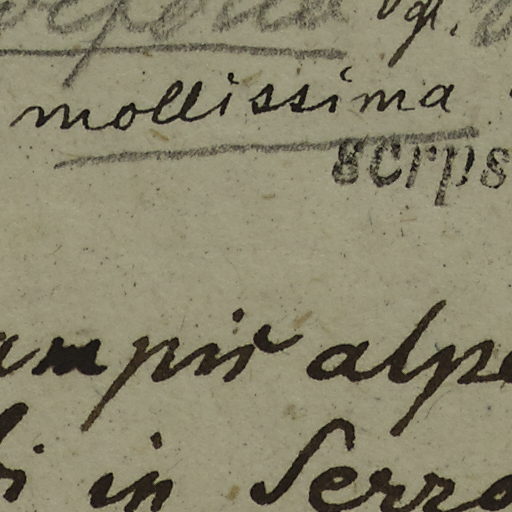 vgl.
mollissima
scrps
ampis alpe
bi in Serra